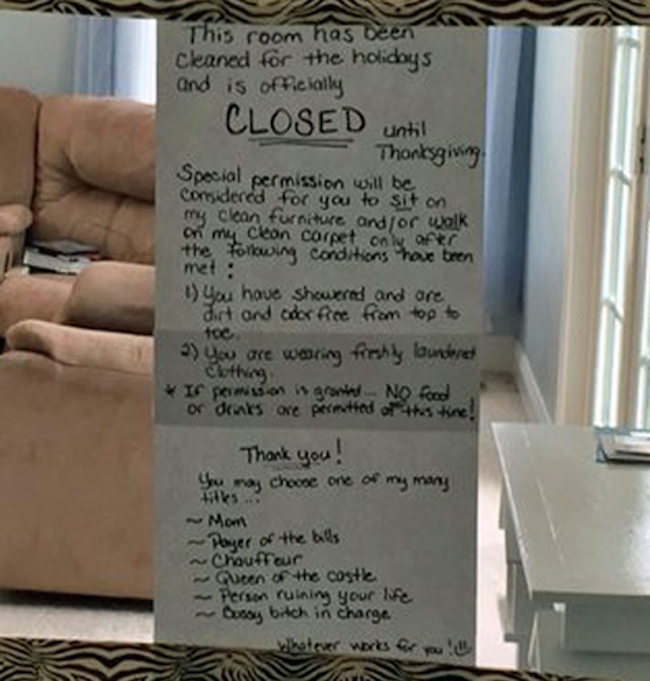 This room has been
cleaned for the holidays
and is officially
CLOSED until
Thanksgiving.
Special permission will be
considered for you to sit on
my clean furniture and/or walk
on my clean carpet only after
the following conditions have been
met :
1) You have showered and are
dirt and odor free from top to
toe.
2) You are wearing freshly laundered
clothing.
* If permission is granted... NO food
or drinks are permitted at this time!
Thank you!
You may choose one of my many
titles...
~ Mom
~ Payer of the bills
~ Chauffeur
~ Queen of the castle
~ Person ruining your life
~ Bossy bitch in charge
Whatever works for you!